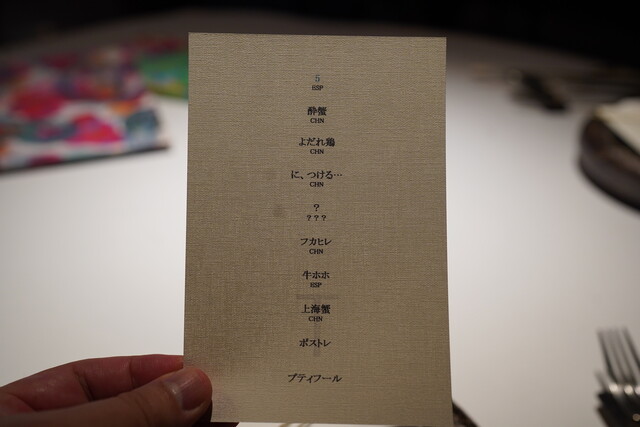 5
ESP
酔蟹
CHN
よだれ鶏
CHN
に、つける…
CHN
?
???
フカヒレ
CHN
牛ホホ
ESP
上海蟹
CHN
ポストレ
プティフール